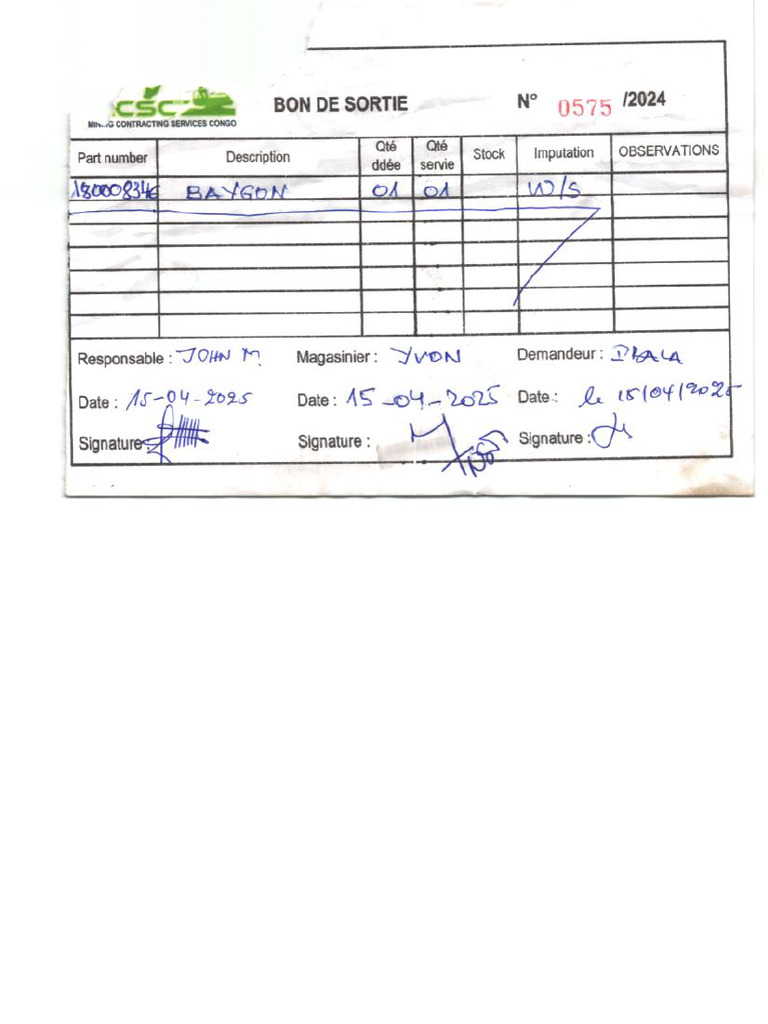 CSC
MINING CONTRACTING SERVICES CONGO
BON DE SORTIE N° 0575 /2024
Part number Description Qté ddée Qté servie Stock Imputation OBSERVATIONS
180008346 BAYGON 01 01 W/S
Responsable : JOHN M. Magasinier : YVON Demandeur :
Date : 15-04-2025 Date : 15-04-2025 Date : le 15/04/2025
Signature Signature : Signature :